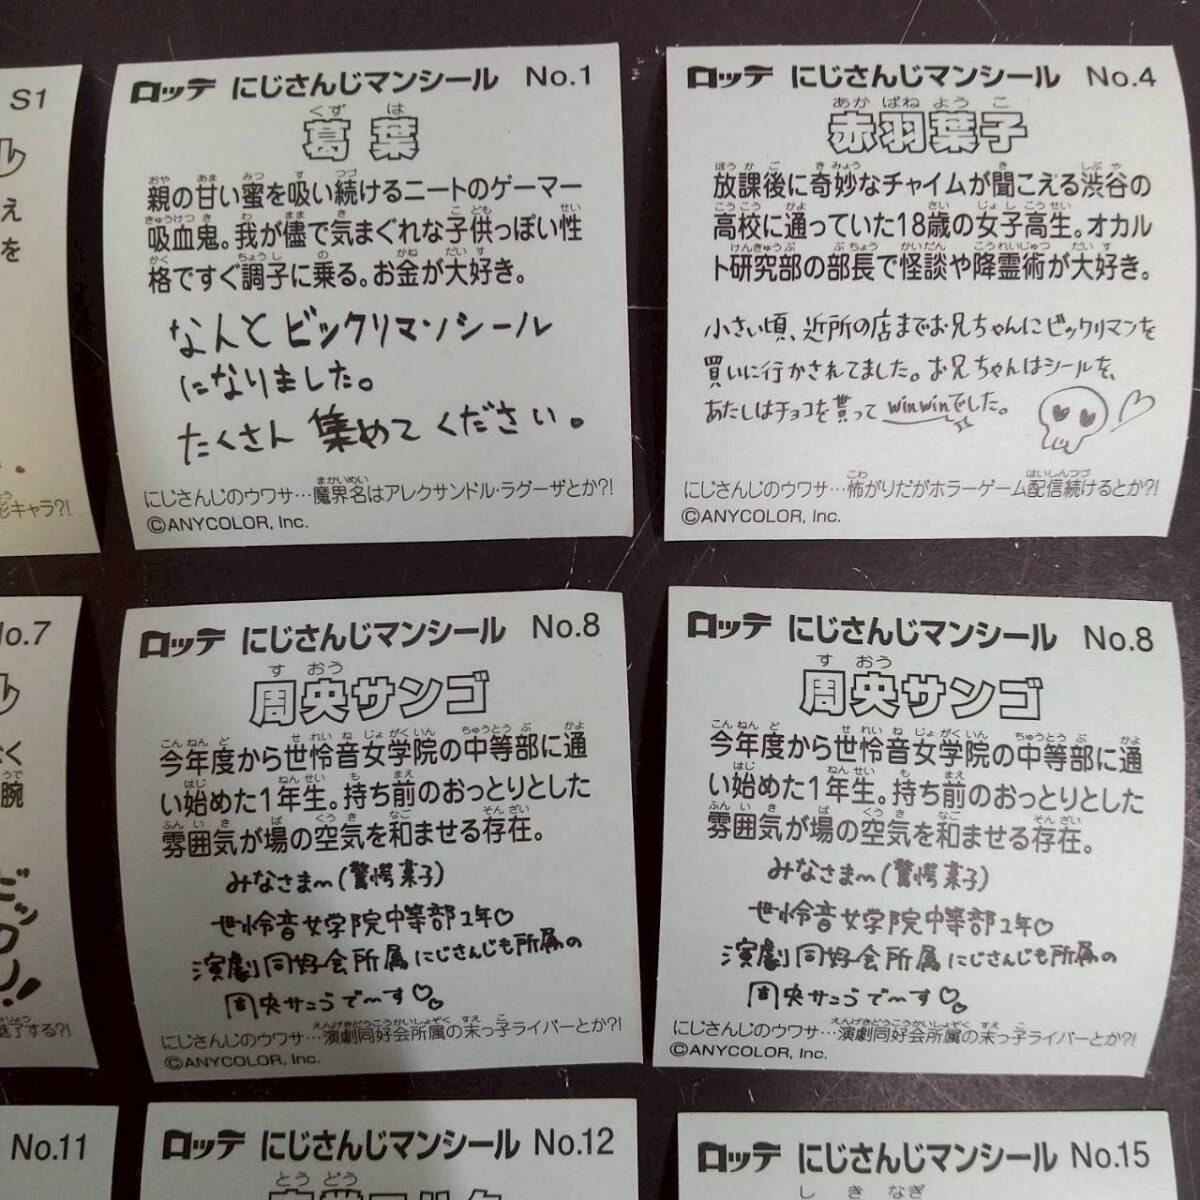 S1
ル
え
を
形キャラ?!
ロッテ にじさんじマンシール No.1
くず は
葛葉
親の甘い蜜を吸い続けるニートのゲーマー
吸血鬼。我が儘で気まぐれな子供っぽい性
格ですぐ調子に乗る。お金が大好き。
なんと ビックリマンシール
になりました。
たくさん 集めて ください。
にじさんじのウワサ…魔界名はアレクサンドル・ラグーザとか?!
©ANYCOLOR, Inc.
ロッテ にじさんじマンシール No.4
あか ばね よう こ
赤羽葉子
放課後に奇妙なチャイムが聞こえる渋谷の
高校に通っていた18歳の女子高生。オカル
ト研究部の部長で怪談や降霊術が大好き。
小さい頃、近所の店までお兄ちゃんにビックリマンを
買いに行かされてました。お兄ちゃんはシールを、
あたしはチョコを貰って winwinでした。
にじさんじのウワサ…怖がりだがホラーゲーム配信続けるとか?!
©ANYCOLOR, Inc.
No.7
ル
く
腕
ビッ
クリ!!
魅了する?!
ロッテ にじさんじマンシール No.8
す おう
周央サンゴ
今年度から世怜音女学院の中等部に通
い始めた1年生。持ち前のおっとりとした
雰囲気が場の空気を和ませる存在。
みなさま〜(驚愕菓子)
世怜音女学院中等部1年♡
演劇同好会所属にじさんじも所属の
周央サンゴで〜す♡
にじさんじのウワサ…演劇同好会所属の末っ子ライバーとか?!
©ANYCOLOR, Inc.
ロッテ にじさんじマンシール No.8
す おう
周央サンゴ
今年度から世怜音女学院の中等部に通
い始めた1年生。持ち前のおっとりとした
雰囲気が場の空気を和ませる存在。
みなさま〜(驚愕菓子)
世怜音女学院中等部1年♡
演劇同好会所属にじさんじも所属の
周央サンゴで〜す♡
にじさんじのウワサ…演劇同好会所属の末っ子ライバーとか?!
©ANYCOLOR, Inc.
No.11
ロッテ にじさんじマンシール No.12
とう どう
ロッテ にじさんじマンシール No.15
し き なぎ